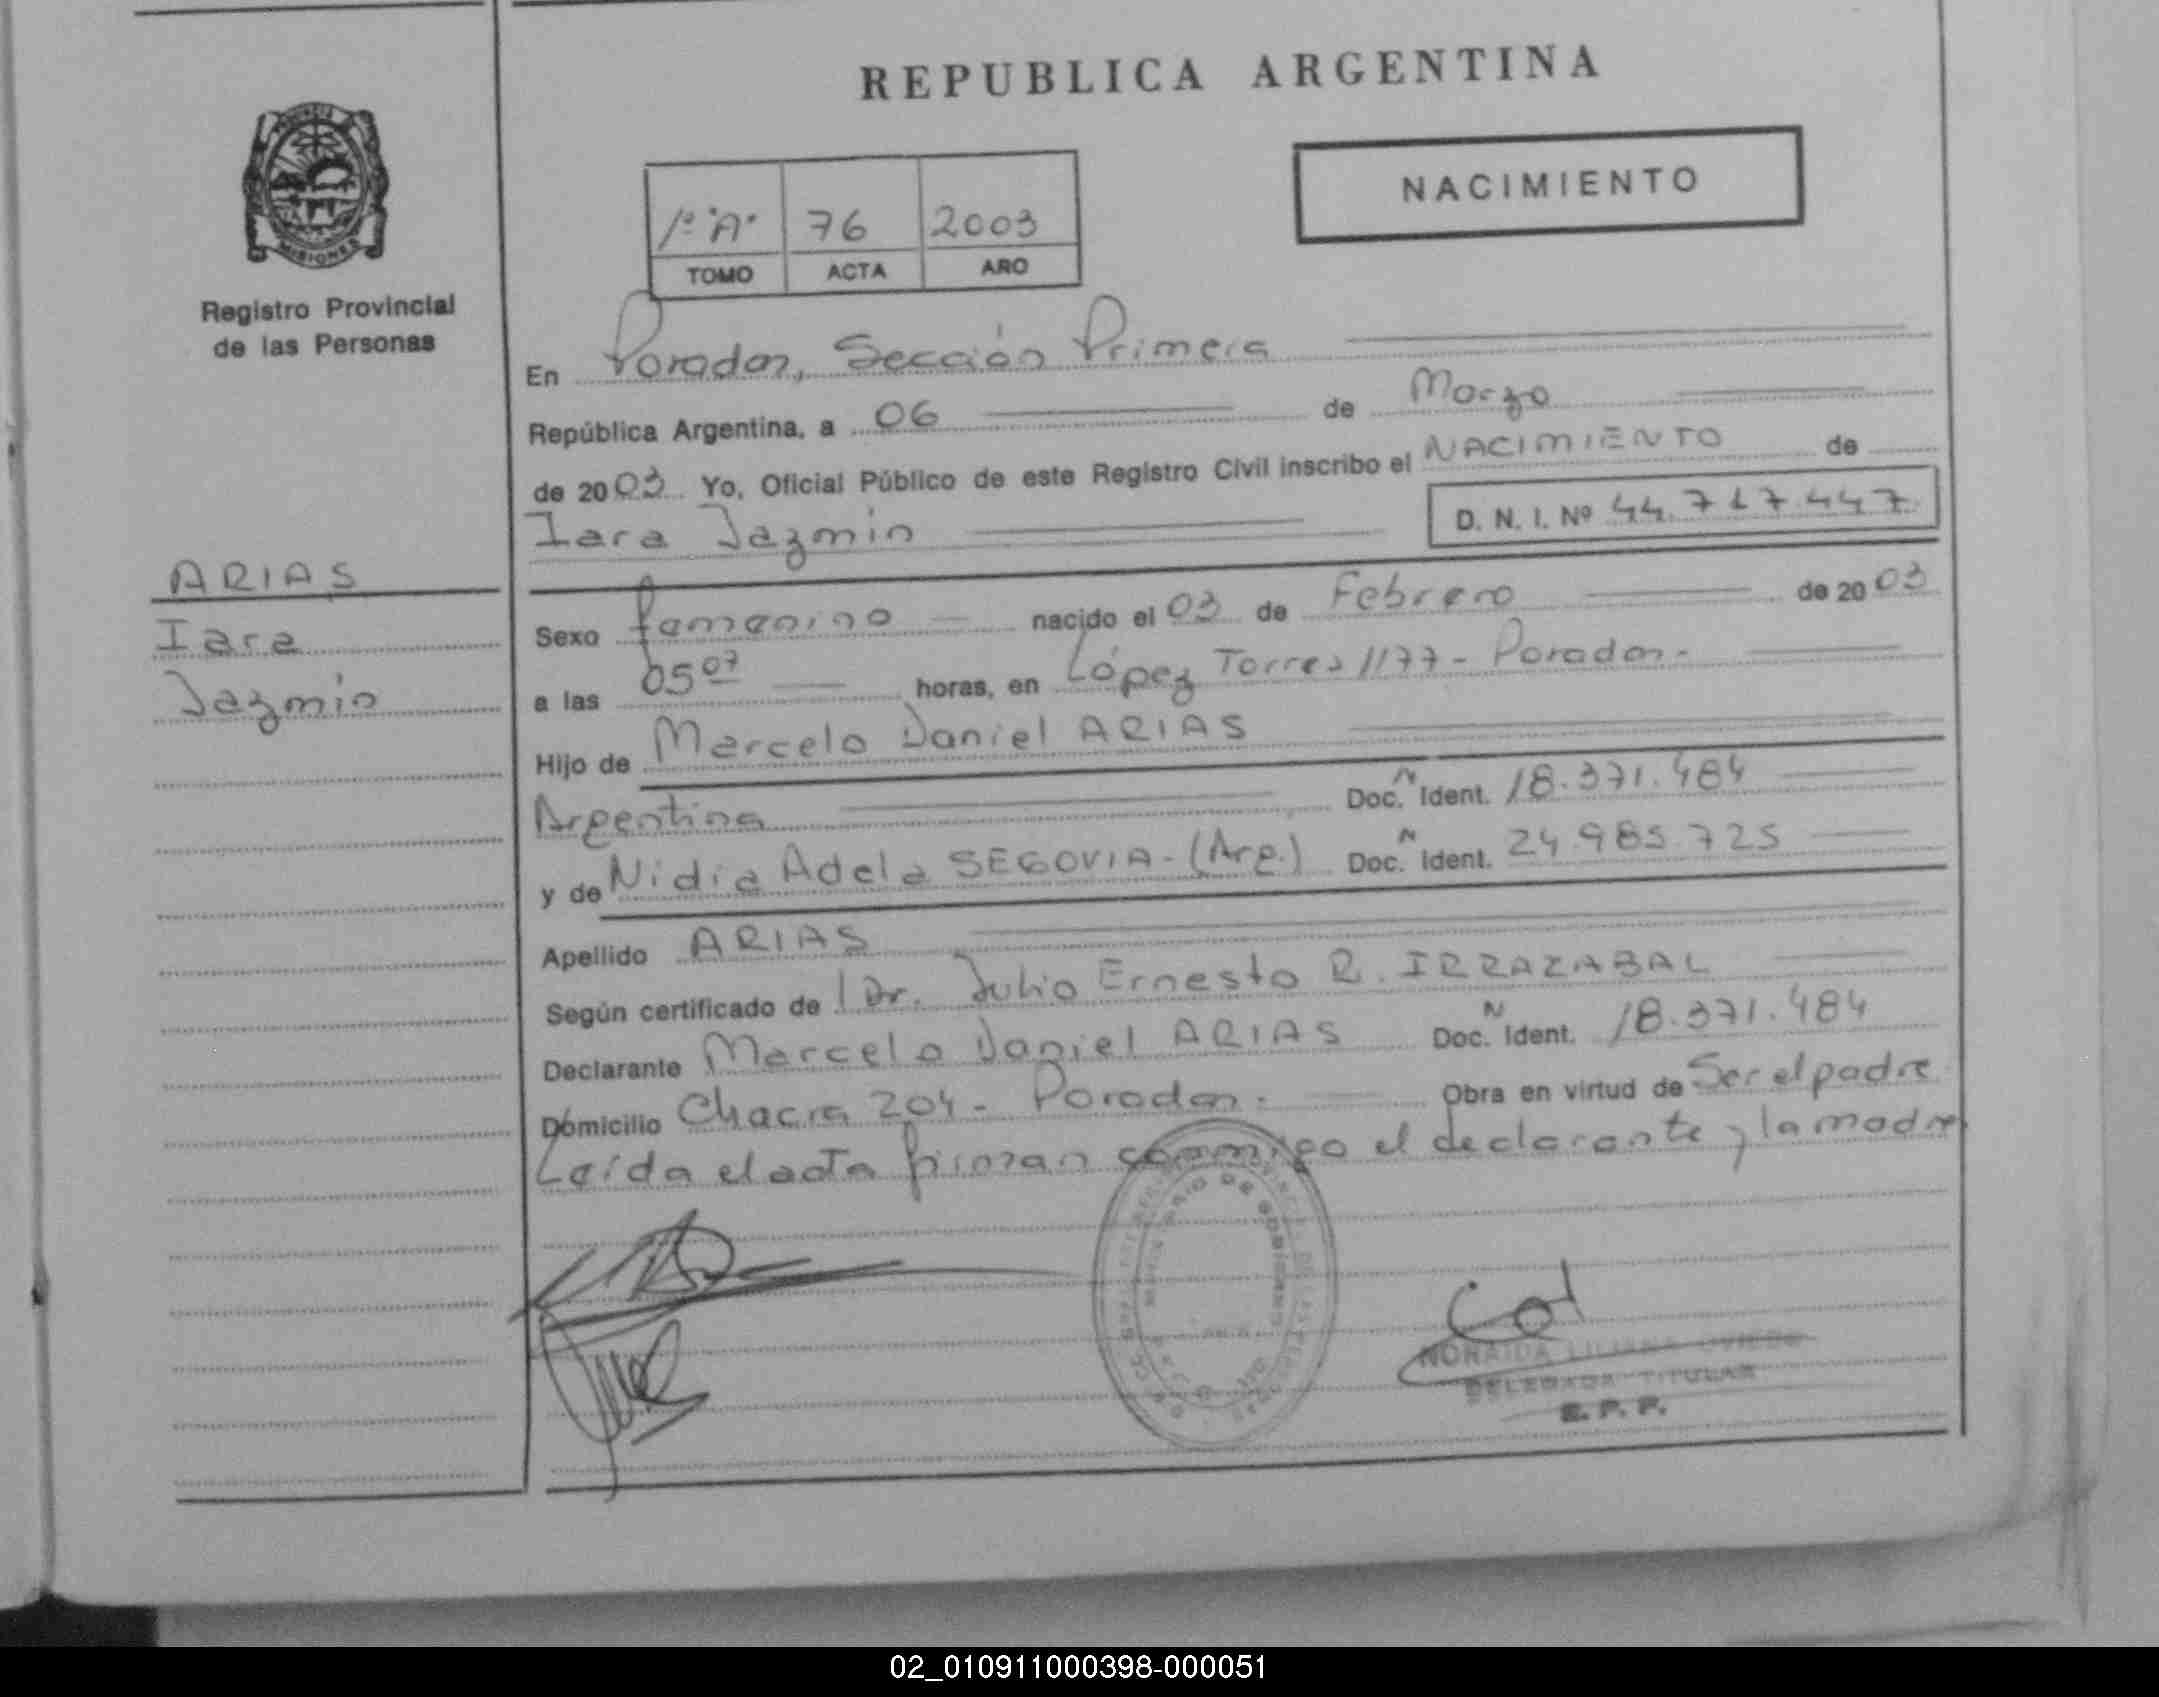 REPUBLICA ARGENTINA
NACIMIENTO
1º "A" 76 2003
TOMO ACTA AÑO
MISIONES
Registro Provincial
de las Personas
En Posadas, Sección Primera
República Argentina, a 06 de Marzo
de 2003 Yo, Oficial Público de este Registro Civil inscribo el NACIMIENTO de
Iara Jazmin D. N. I. Nº 44.717.447
ARIAS
Iara
Jazmin
Sexo femenino nacido el 03 de Febrero de 2003
a las 05 07 horas, en López Torres 1177 - Posadas.
Hijo de Marcelo Daniel ARIAS
Argentina Doc. N Ident. 18.371.484
y de Nidia Adela SEGOVIA - (Arg.) Doc. N Ident. 24.985.725
Apellido ARIAS
Según certificado de Dr. Julio Ernesto R. IRRAZABAL
Declarante Marcelo Daniel ARIAS Doc. N Ident. 18.371.484
Domicilio Chacra 204 - Posadas. Obra en virtud de Ser el padre
Leída el acta firman conmigo el declarante y la madre
NORAIDA LILIANA OVIEDO
DELEGADA TITULAR
R. P. P.
02_010911000398-000051